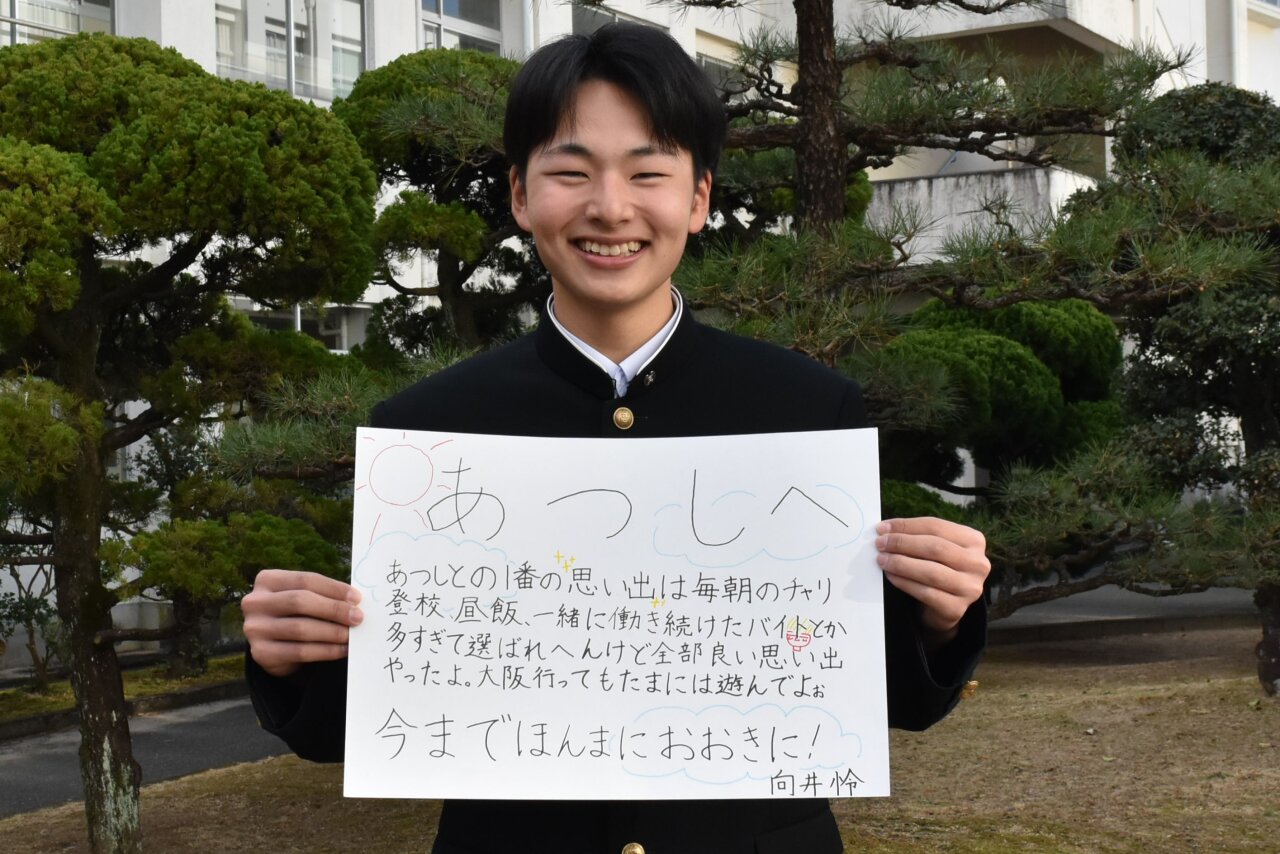 あつしへ
あつしとの1番の思い出は毎朝のチャリ
登校、昼飯、一緒に働き続けたバイトとか
多すぎて選ばれへんけど全部良い思い出
やったよ。大阪行ってもたまには遊んでよぉ
今までほんまにおおきに!
向井怜